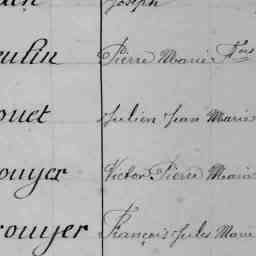 Joseph
eulin Pierre Marie Fçois
ouet Julien Jean Marie
ouyer Victor Pierre Marie
rouyer François Jules Marie